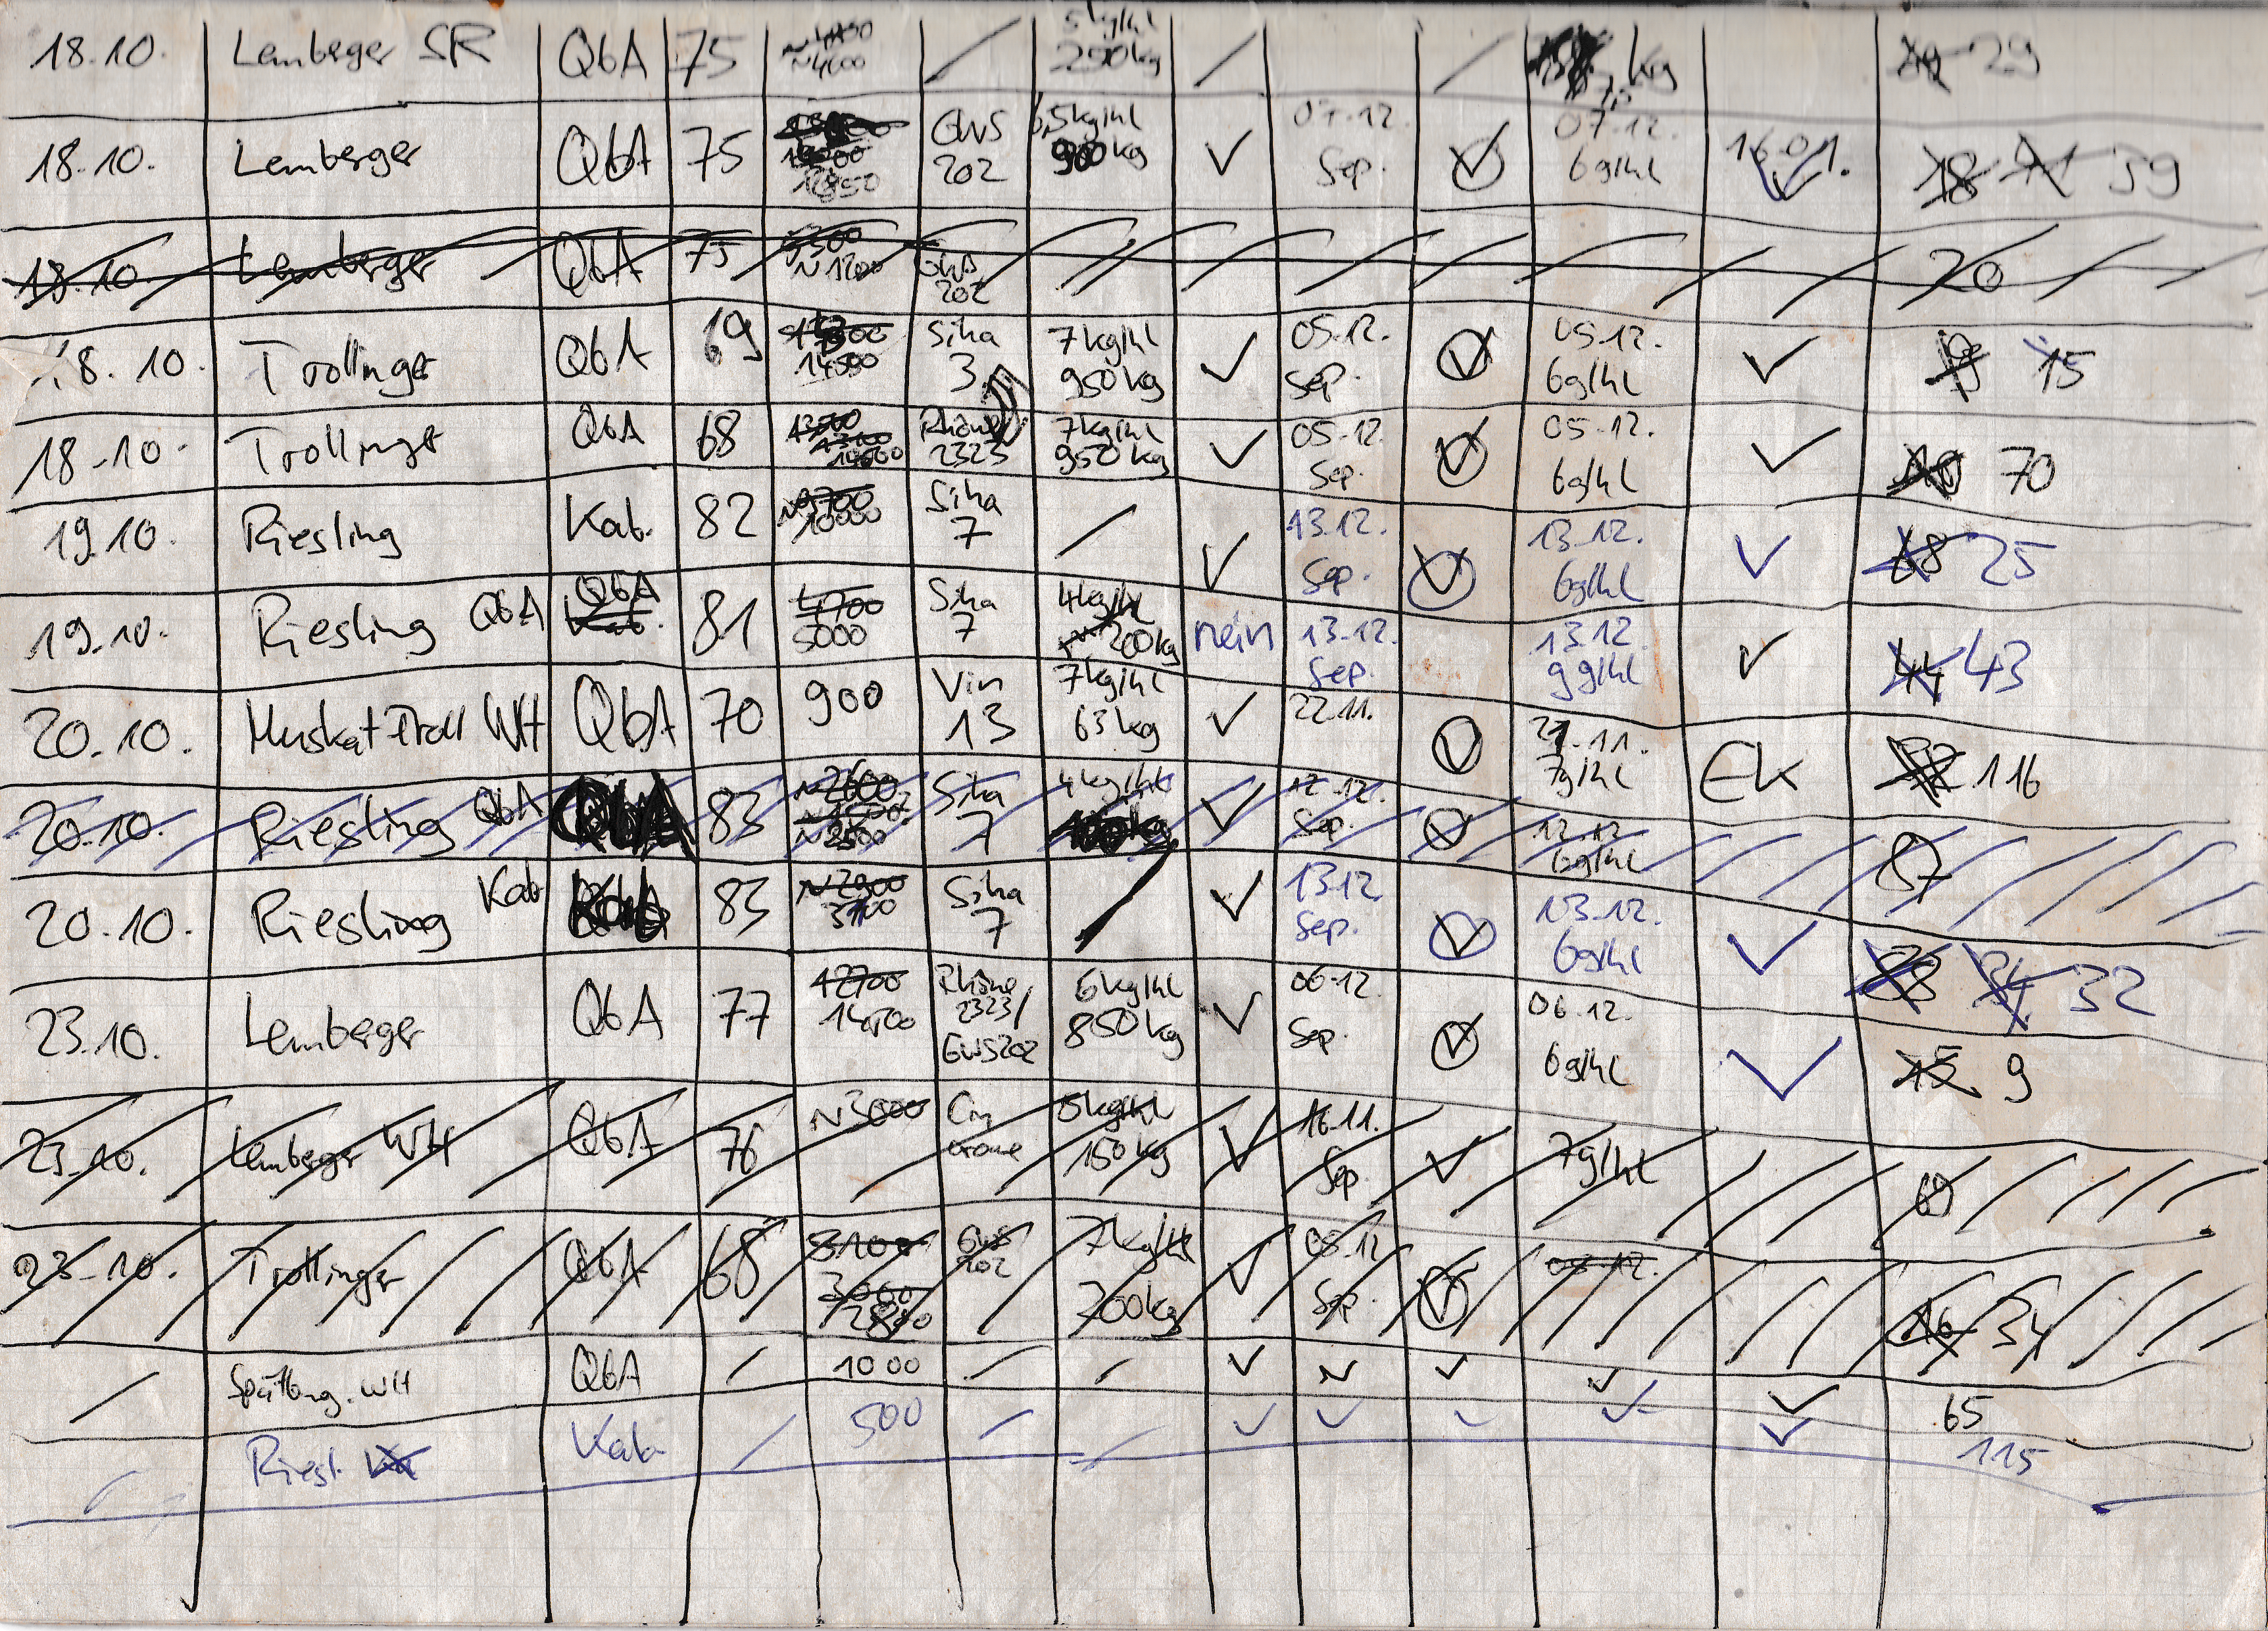 18.10. Lemberger SR QbA 75 ~4600 / 5kg/hl 250kg / / kg 29
18.10. Lemberger QbA 75 12850 GWS 202 6,5kg/hl 900kg ✓ 07.12. Sep. ✓ 07.12. 6g/hl 16.01. ✓ 18 41 39
18.10. Lemberger QbA 75 ~1200 GWS 202 20
18.10. Trollinger QbA 69 14500 Siha 3 7kg/hl 950kg ✓ 05.12. Sep. ✓ 05.12. 6g/hl ✓ 15
18.10. Trollinger QbA 68 13500 Rhône 2323 7kg/hl 950kg ✓ 05.12. Sep. ✓ 05.12. 6g/hl ✓ 70
19.10. Riesling Kab. 82 ~9700 10000 Siha 7 / ✓ 13.12. Sep. ✓ 13.12. 6g/hl ✓ 68 25
19.10. Riesling QbA QbA Kab. 81 4700 5000 Siha 7 4kg/hl ~200kg nein 13.12. Sep. 13.12. 9g/hl ✓ 44 43
20.10. Muskat Troll WH QbA 70 900 Vin 13 7kg/hl 63kg ✓ 22.11. ✓ 21.11. 7g/hl EK 116
20.10. Riesling QbA QbA 83 ~2600 ~2500 Siha 7 4kg/hl 100kg ✓ 12.12. Sep. ✓ 12.12. 6g/hl 87
20.10. Riesling Kab 83 ~2900 3100 Siha 7 / ✓ 13.12. Sep. ✓ 13.12. 6g/hl ✓ 34 32
23.10. Lemberger QbA 77 12700 14500 Rhône 2323/ GWS202 6kg/hl 850kg ✓ 06.12. Sep. ✓ 06.12. 6g/hl ✓ 15 9
23.10. Lemberger WH QbA 76 ~3000 5kg/hl 150kg ✓ 16.11. Sep. ✓ 7g/hl 69
23.10. Trollinger QbA 68 3100 3000 2800 GWS 202 7kg/hl 200kg ✓ 05.12. Sep. ✓ 05.12. 16 34
/ Spätbrg. WH QbA / 1000 / / ✓ ✓ ✓ ✓ ✓ 65
Riesl. Kab / 500 / / ✓ ✓ ✓ ✓ ✓ 115